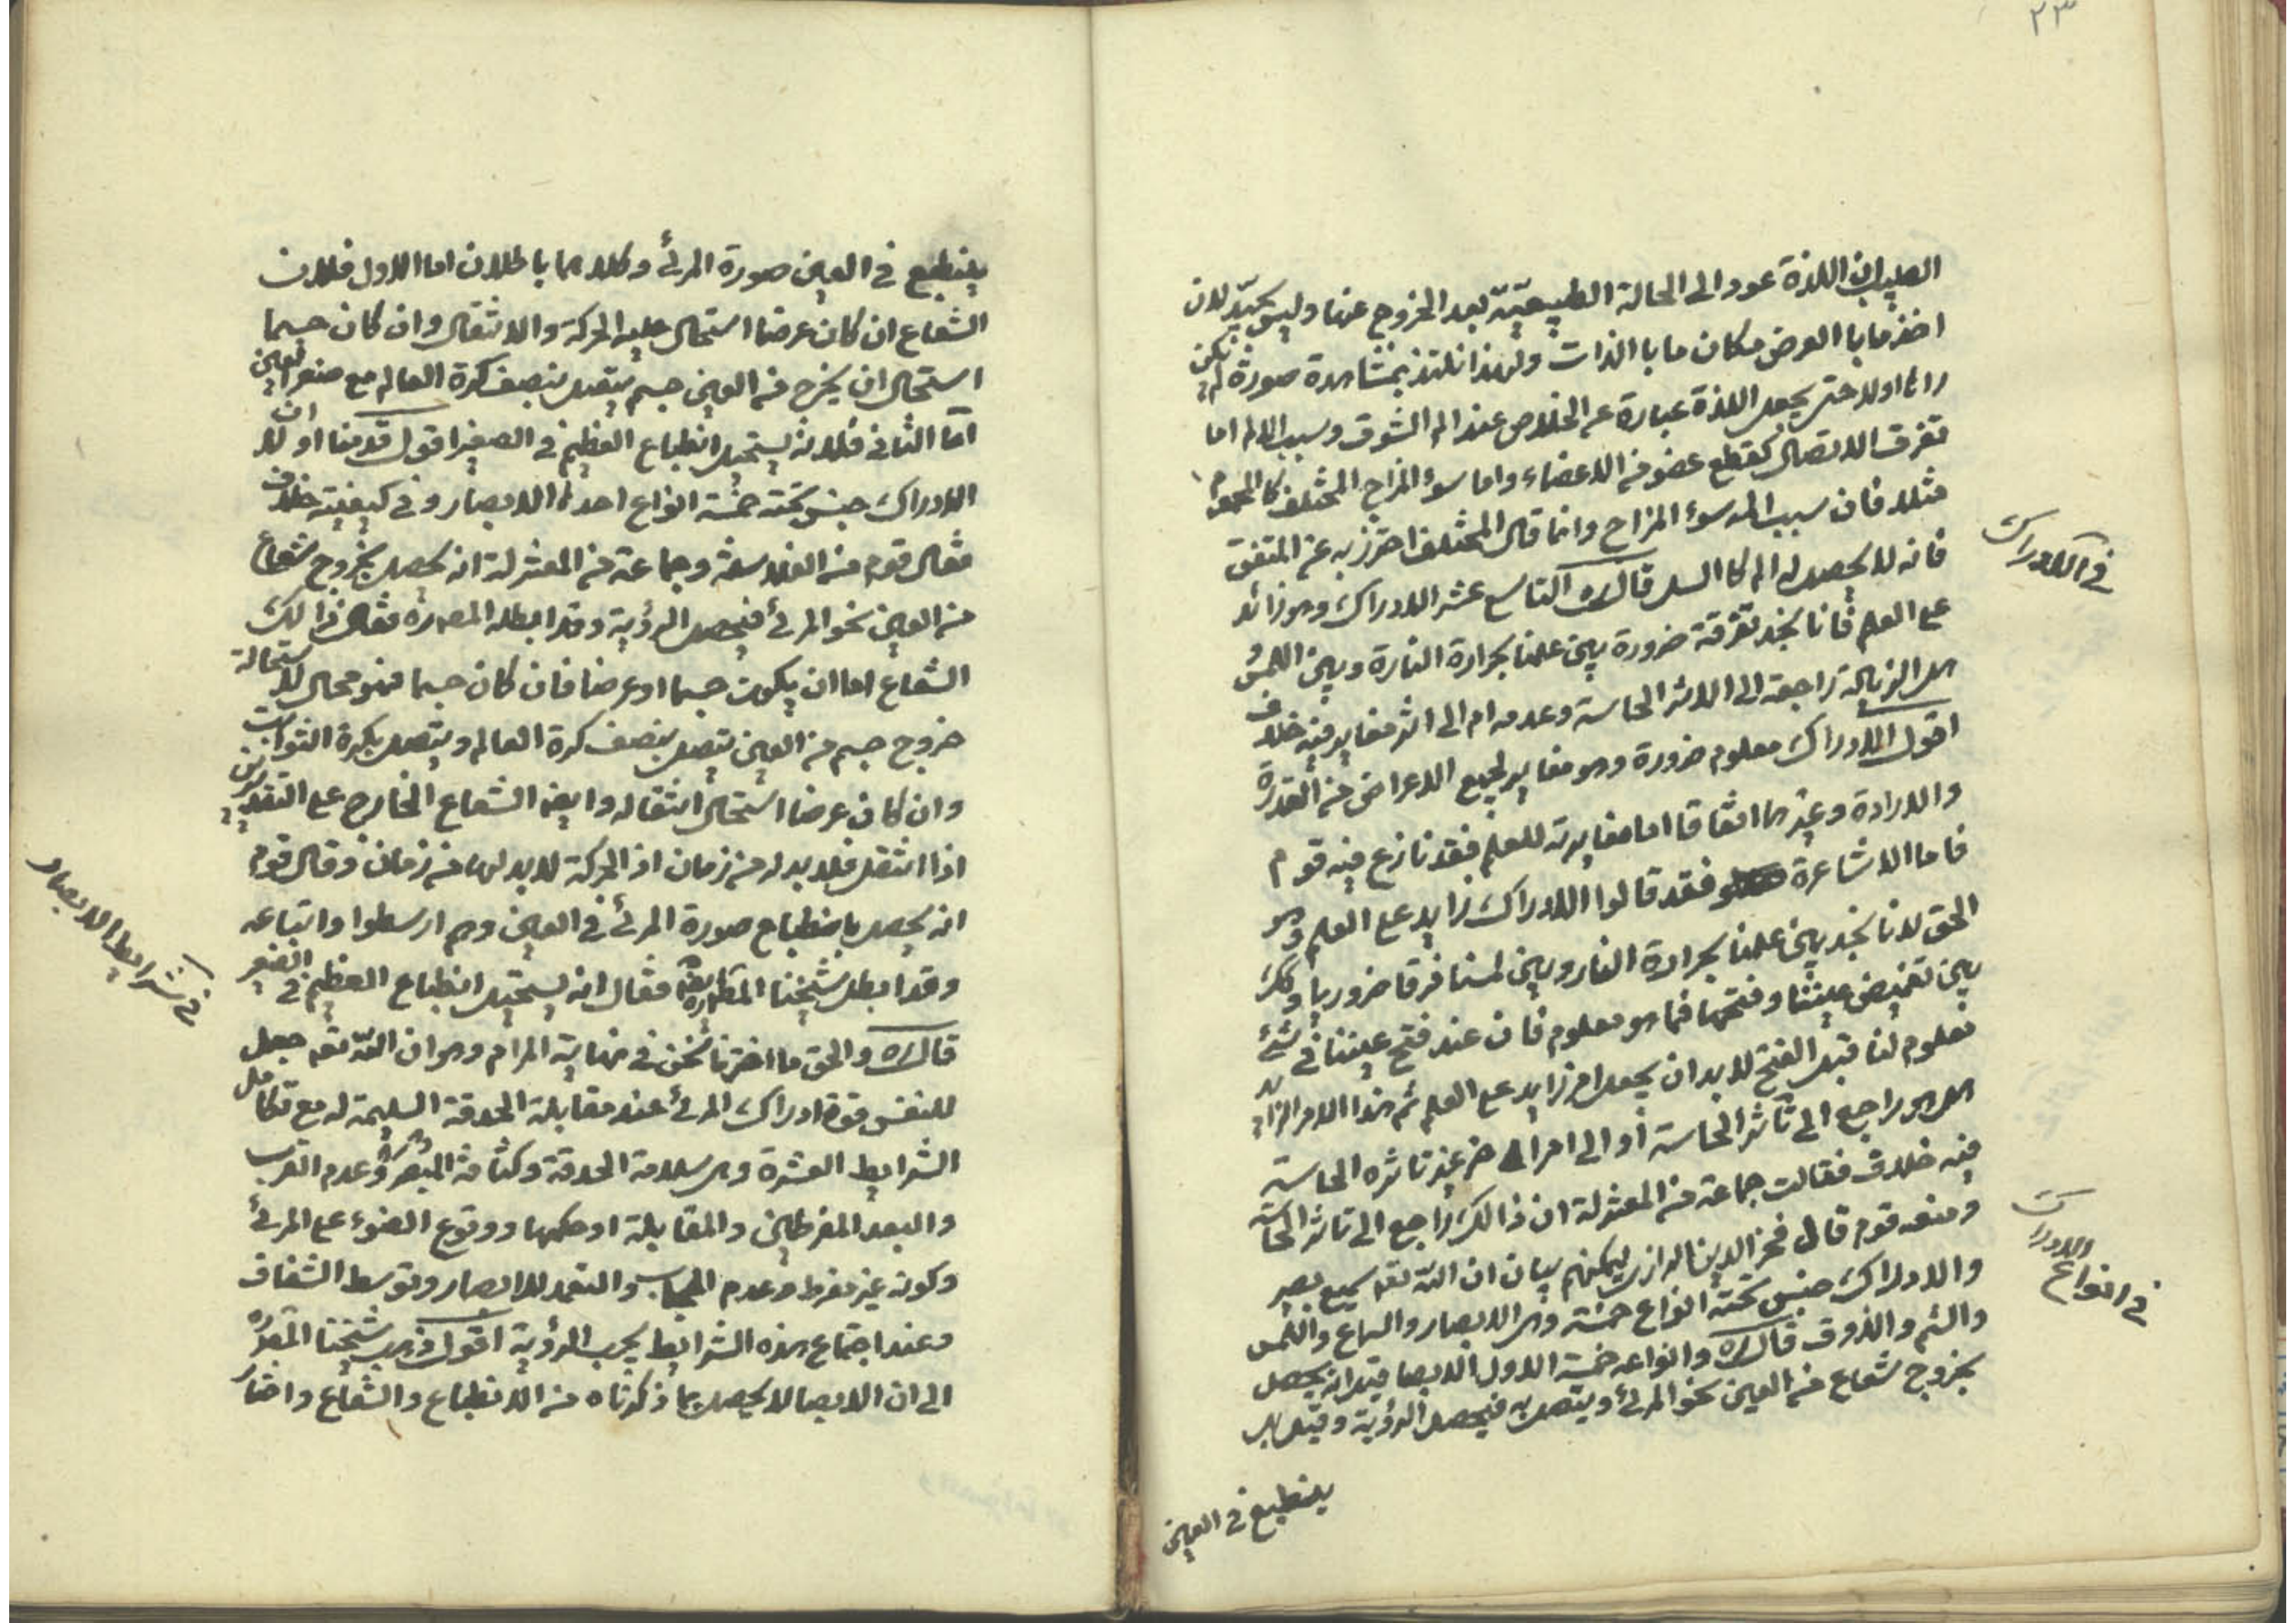 ٢٣
الطبيب ان اللذة عود الى الحالة الطبيعية بعد الخروج عنها وليس بجيد لان
اخذ ما با العرض مكان ما با الذات ولهذا نلتذ بمشاهدة صورة لم نكن
راها اولا حتى يجعل اللذة عبارة عن الخلاص عند الم الشوق وسبب الالم اما
تفرق الاتصال كقطع عضو من الاعضاء واما سوء المزاج المختلف كا المحموم
مثلا فان سبب المه سوء المزاج وانما قال المختلف احترز به عن المتفق
فانه لا يحصل له الم كا السل قال التاسع عشر الادراك وهو زائد
على العلم فانا نجد تفرقة ضرورة بين علمنا بحرارة النارة وبين اللمس و
هل الزيالة راجعة الى الاثر الحاسة وعدمه ام الى اثر مغاير فيه خلاف
اقول الادراك معلوم ضرورة وهو مغاير لجميع الاعراض من القدرة
والارادة وغيرها اتفاقا اما مغايرته للعلم فقد نازع فيه قوم
فاما الاشاعرة فقد قالوا الادراك زايد على العلم وهو
الحق لانا نجد بين علمنا بحرارة النار وبين لمسنا فرقا ضروريا وكك
بين تغميض عيننا وفتحها فما هو معلوم فان عند فتح عيننا في شئ
معلوم لنا قبل الفتح لا بد ان يحصل امر زايد على العلم ثم هذا الامر الزايد
هل هو راجع الى تأثر الحاسة أو الى امر اخر غير تاثره الحاسة
فيه خلاف فقالت جماعة من المعتزلة ان ذالك راجع الى تاثر الحاسة
ومنعه قوم قال فخر الدين الرازي ليمكنهم بيان ان الله تعه سميع بصير
والادراك جنس تحته انواع خمسة وهي الابصار والسماع واللمس
والشم والذوق قال وانواعه خمسة الاول الابصا قيل انه يحصل
بخروج شعاع من العين نحو المرئ ويتصل به فيحصل الرؤية وقيل بل
ينطبع في العين
في الادراك
في انواع الادراك
ينطبع في العين صورة المرئ وكلاهما باطلان اما الاول فلان
الشعاع ان كان عرضا استحال عليه الحركة والانتقال وان كان جسما
استحال ان يخرج من العين جسم يتصل بنصف كرة العالم مع صغر العين
اما الثاني فلانه يستحيل انطباع العظيم في الصغير اقول قدمنا اولا ان
الادراك جنس تحته خمسة انواع احدها الابصار وفي كيفيته خلاف
فقال قوم من الفلاسفة وجماعة من المعتزلة انه يحصل بخروج شعاع
من العين نحو المرئ فيحصل الرؤية وقد ابطله المصره فقال ذالك
الشعاع اما ان يكون جسما او عرضا فان كان جسما فهو محال لاستحالة
خروج جسم من العين يتصل بنصف كرة العالم ويتصل بكرة الثوابت
وان كان عرضا استحال انتقاله وايضا الشعاع الخارج على التقديرين
اذا انتقل فلا بد له من زمان اذ الحركة لا بد لها من زمان وقال قوم
انه يحصل بانطباع صورة المرئ في العين وهم ارسطوا واتباعه
وقد ابطل شيخنا فقال انه يستحيل انطباع العظيم في الصغير
قال والحق ما اخترنا نحن في نهاية المرام وهو ان الله تعه جعل
للنفس قوة ادراك المرئ عند مقابلة الحدقة السليمة له مع تكامل
الشرايط العشرة وهي سلامة الحدقة وكثافة المبصر وعدم القرب
والبعد المفرطين والمقابلة او حكمها ووقوع الضوء على المرئ
وكونه غير مفرط وعدم الحجاب والتعمد للابصار وتوسط الشفاف
وعند اجتماع هذه الشرايط يجب الرؤية اقول ذهب شيخنا المصره
الى ان الابصا لا يحصل بما ذكرناه من الانطباع والشعاع واختار
في شرايط الابصار